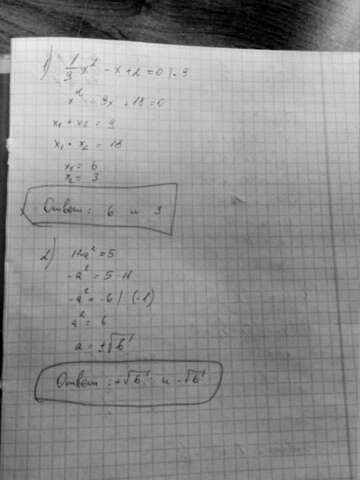 1) 1/9 x² - x + 2 = 0 | · 9
x² - 9x + 18 = 0
x₁ + x₂ = 9
x₁ · x₂ = 18
x₁ = 6
x₂ = 3
Ответ: 6 и 3
2) 11-a² = 5
-a² = 5 - 11
-a² = -6 | (-1)
a² = 6
a = ±√6
Ответ: +√6 и -√6